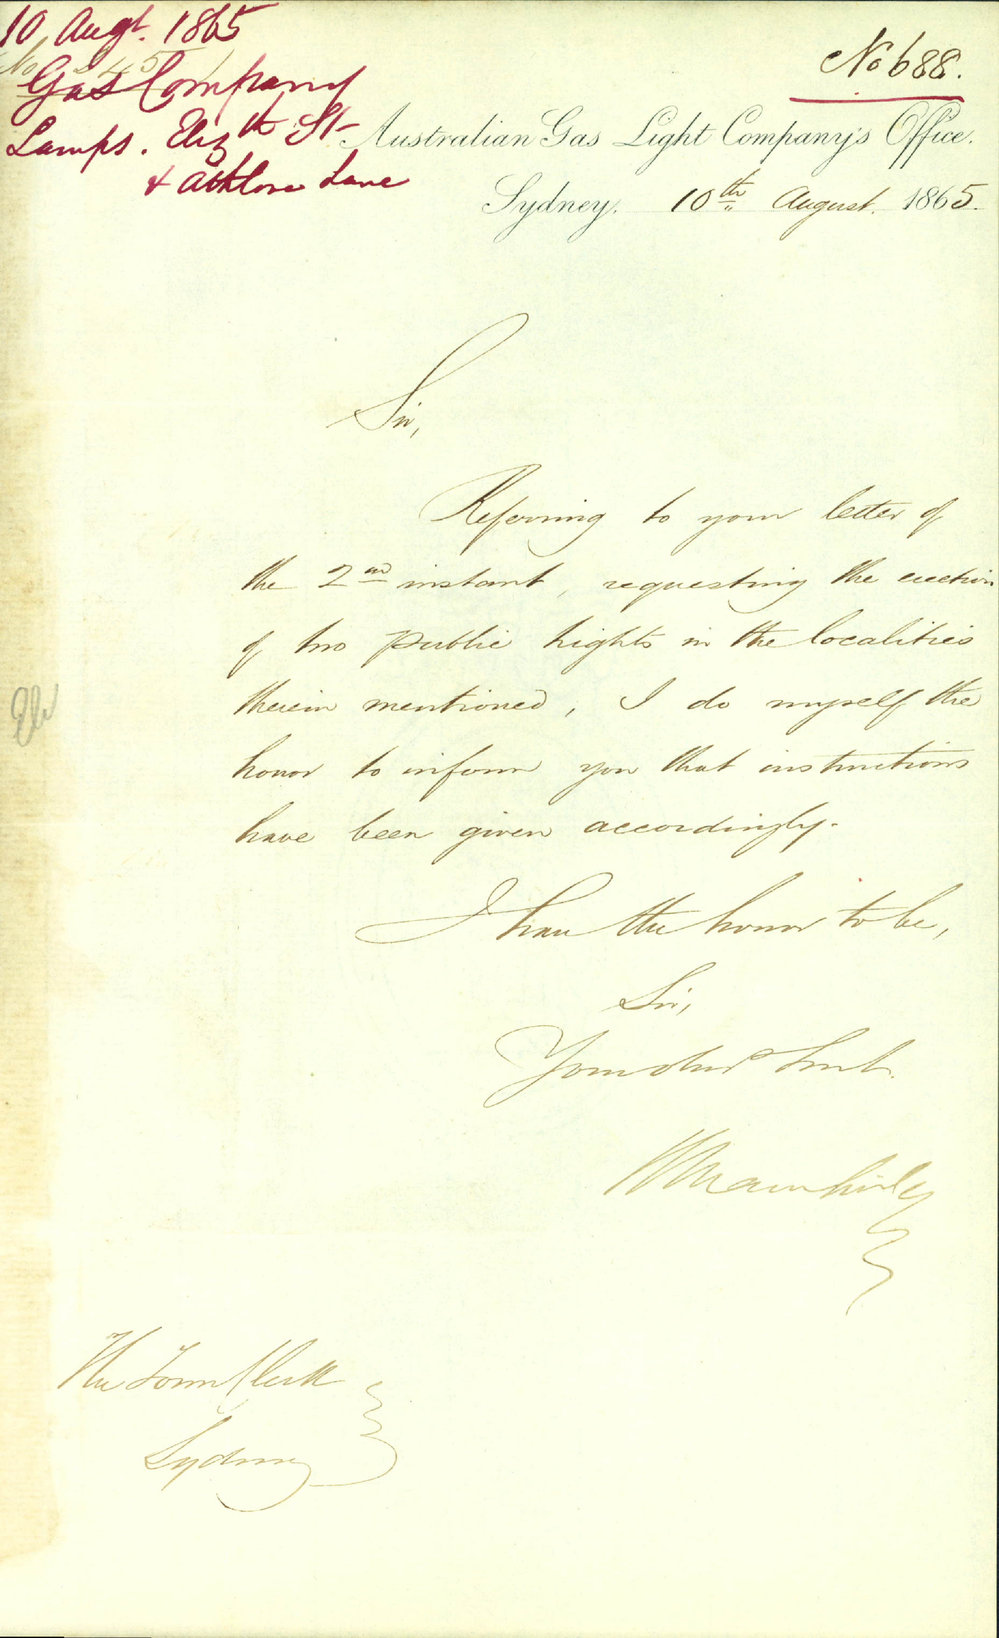 10 Augt. 1865
Gas Company
Lamps. Elizth St
& Athlone Lane
No 688.
Australian Gas Light Company's Office.
Sydney. 10th August. 1865.
Sir,
Referring to your letter of
the 2nd instant, requesting the erection
of two public lights in the localities
therein mentioned, I do myself the
honor to inform you that instructions
have been given accordingly.
I have the honor to be,
Sir,
Your obedt Servt.
The Town Clerk
Sydney